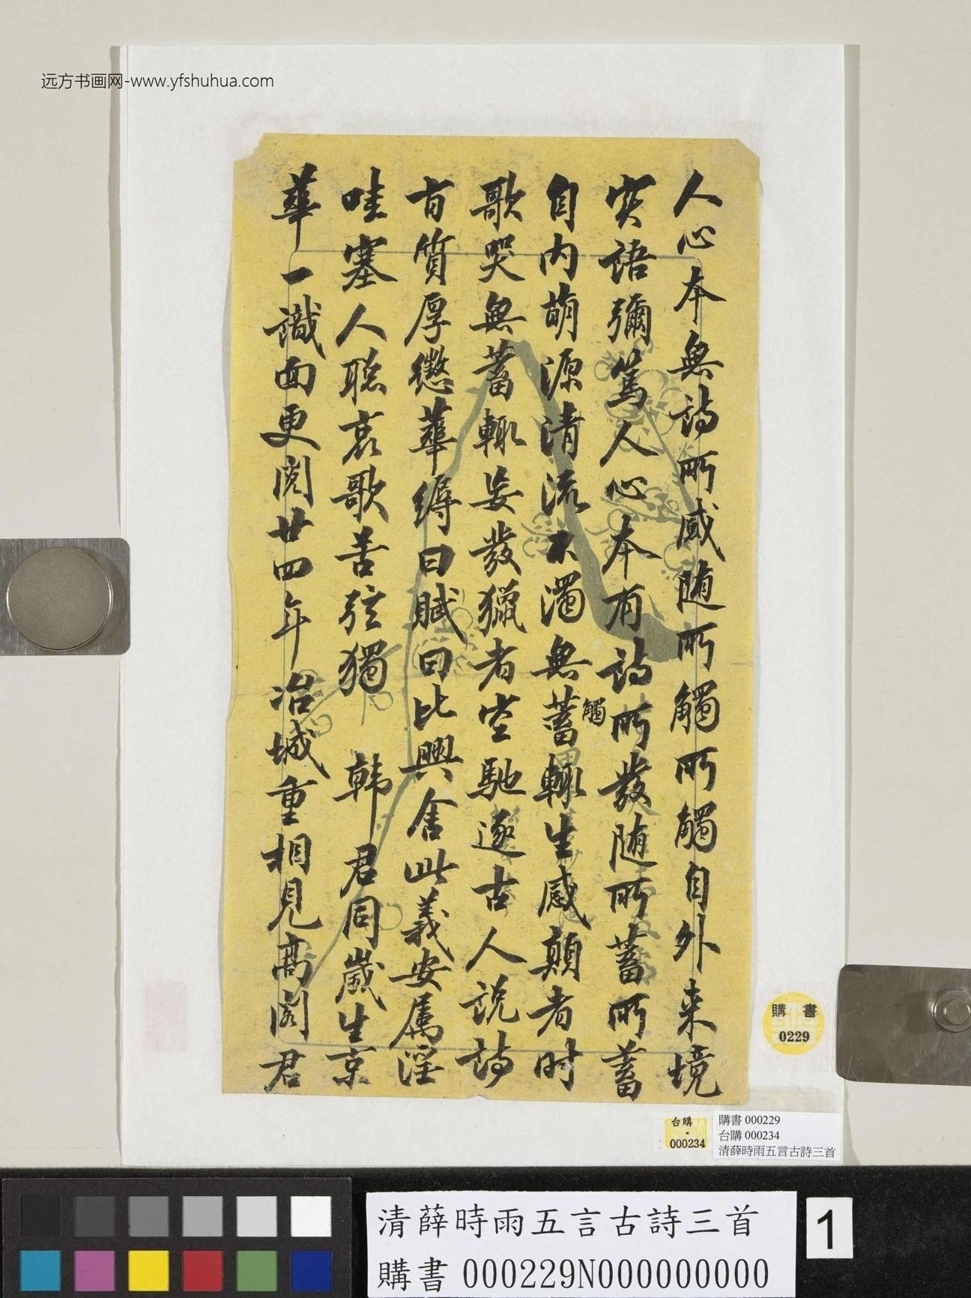 远方书画网-www.yfshuhua.com
人心本無詩所感随所觸所觸自外来境
实語彌篤人心本有詩所發随所蓄所蓄
自内萌源清流不濁無蓄輙生感顛者时
觸
歌哭無蓄輙妄發獵者空馳逐古人説詩
旨質厚懲華縟曰賦曰比興舍此義安属淫
哇塞人聡哀歌苦弦獨 韩君同歲生京
華一識面更閱廿四年冶城重相見高閣君
購書
0229
台購
000234
購書 000229
台購 000234
清薛時雨五言古詩三首
清薛時雨五言古詩三首
購書 000229N000000000
1